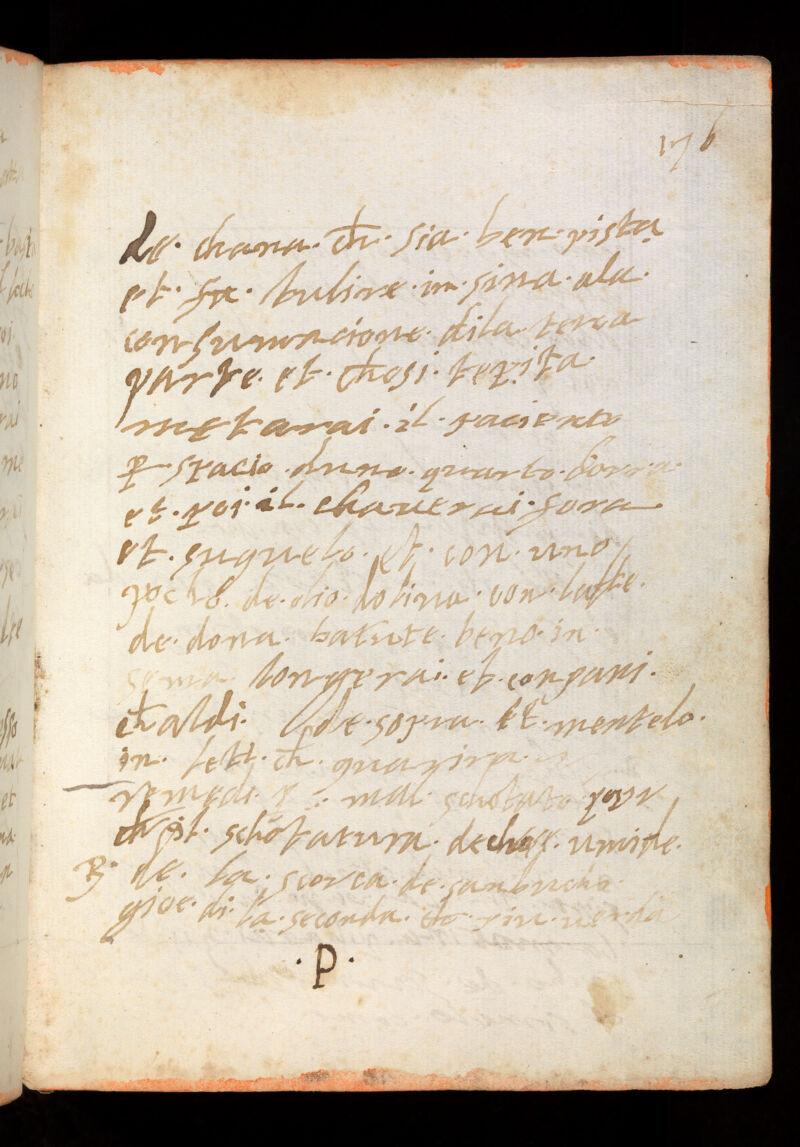 176
de. chana. ch. sia. ben. pista
et. fa. bulire. in. sina. ala.
consumacione. dila. terca
parte. et. chosi. tepita
metarai. il. paciente
p. spacio. duno. quarto. dorra.
et. poi. il. chaverai. fora
et. suguelo. et. con. uno
de. olio. doliva. con. latte.
de. dona. batute. bene. in
sema. longerai. et. con pani.
chaldi. de. sopra. et. mentelo.
in. lett. ch. guarira.
remedi. mal. schotato
ch. schotatura. de umide.
de. la. scorca. de. sanbucho
gioe. di. la. seconda. piu. verda
. P .